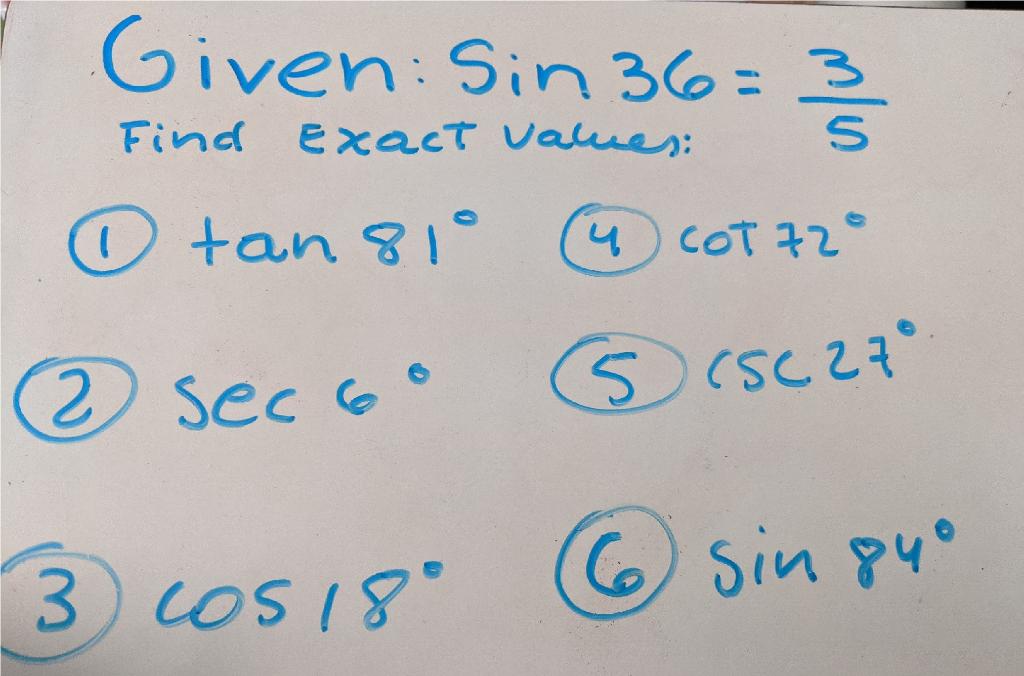 Given: Sin 36 = 3/5
Find Exact Values:
① tan 81°
② sec 6°
③ cos 18°
④ cot 72°
⑤ csc 27°
⑥ sin 84°